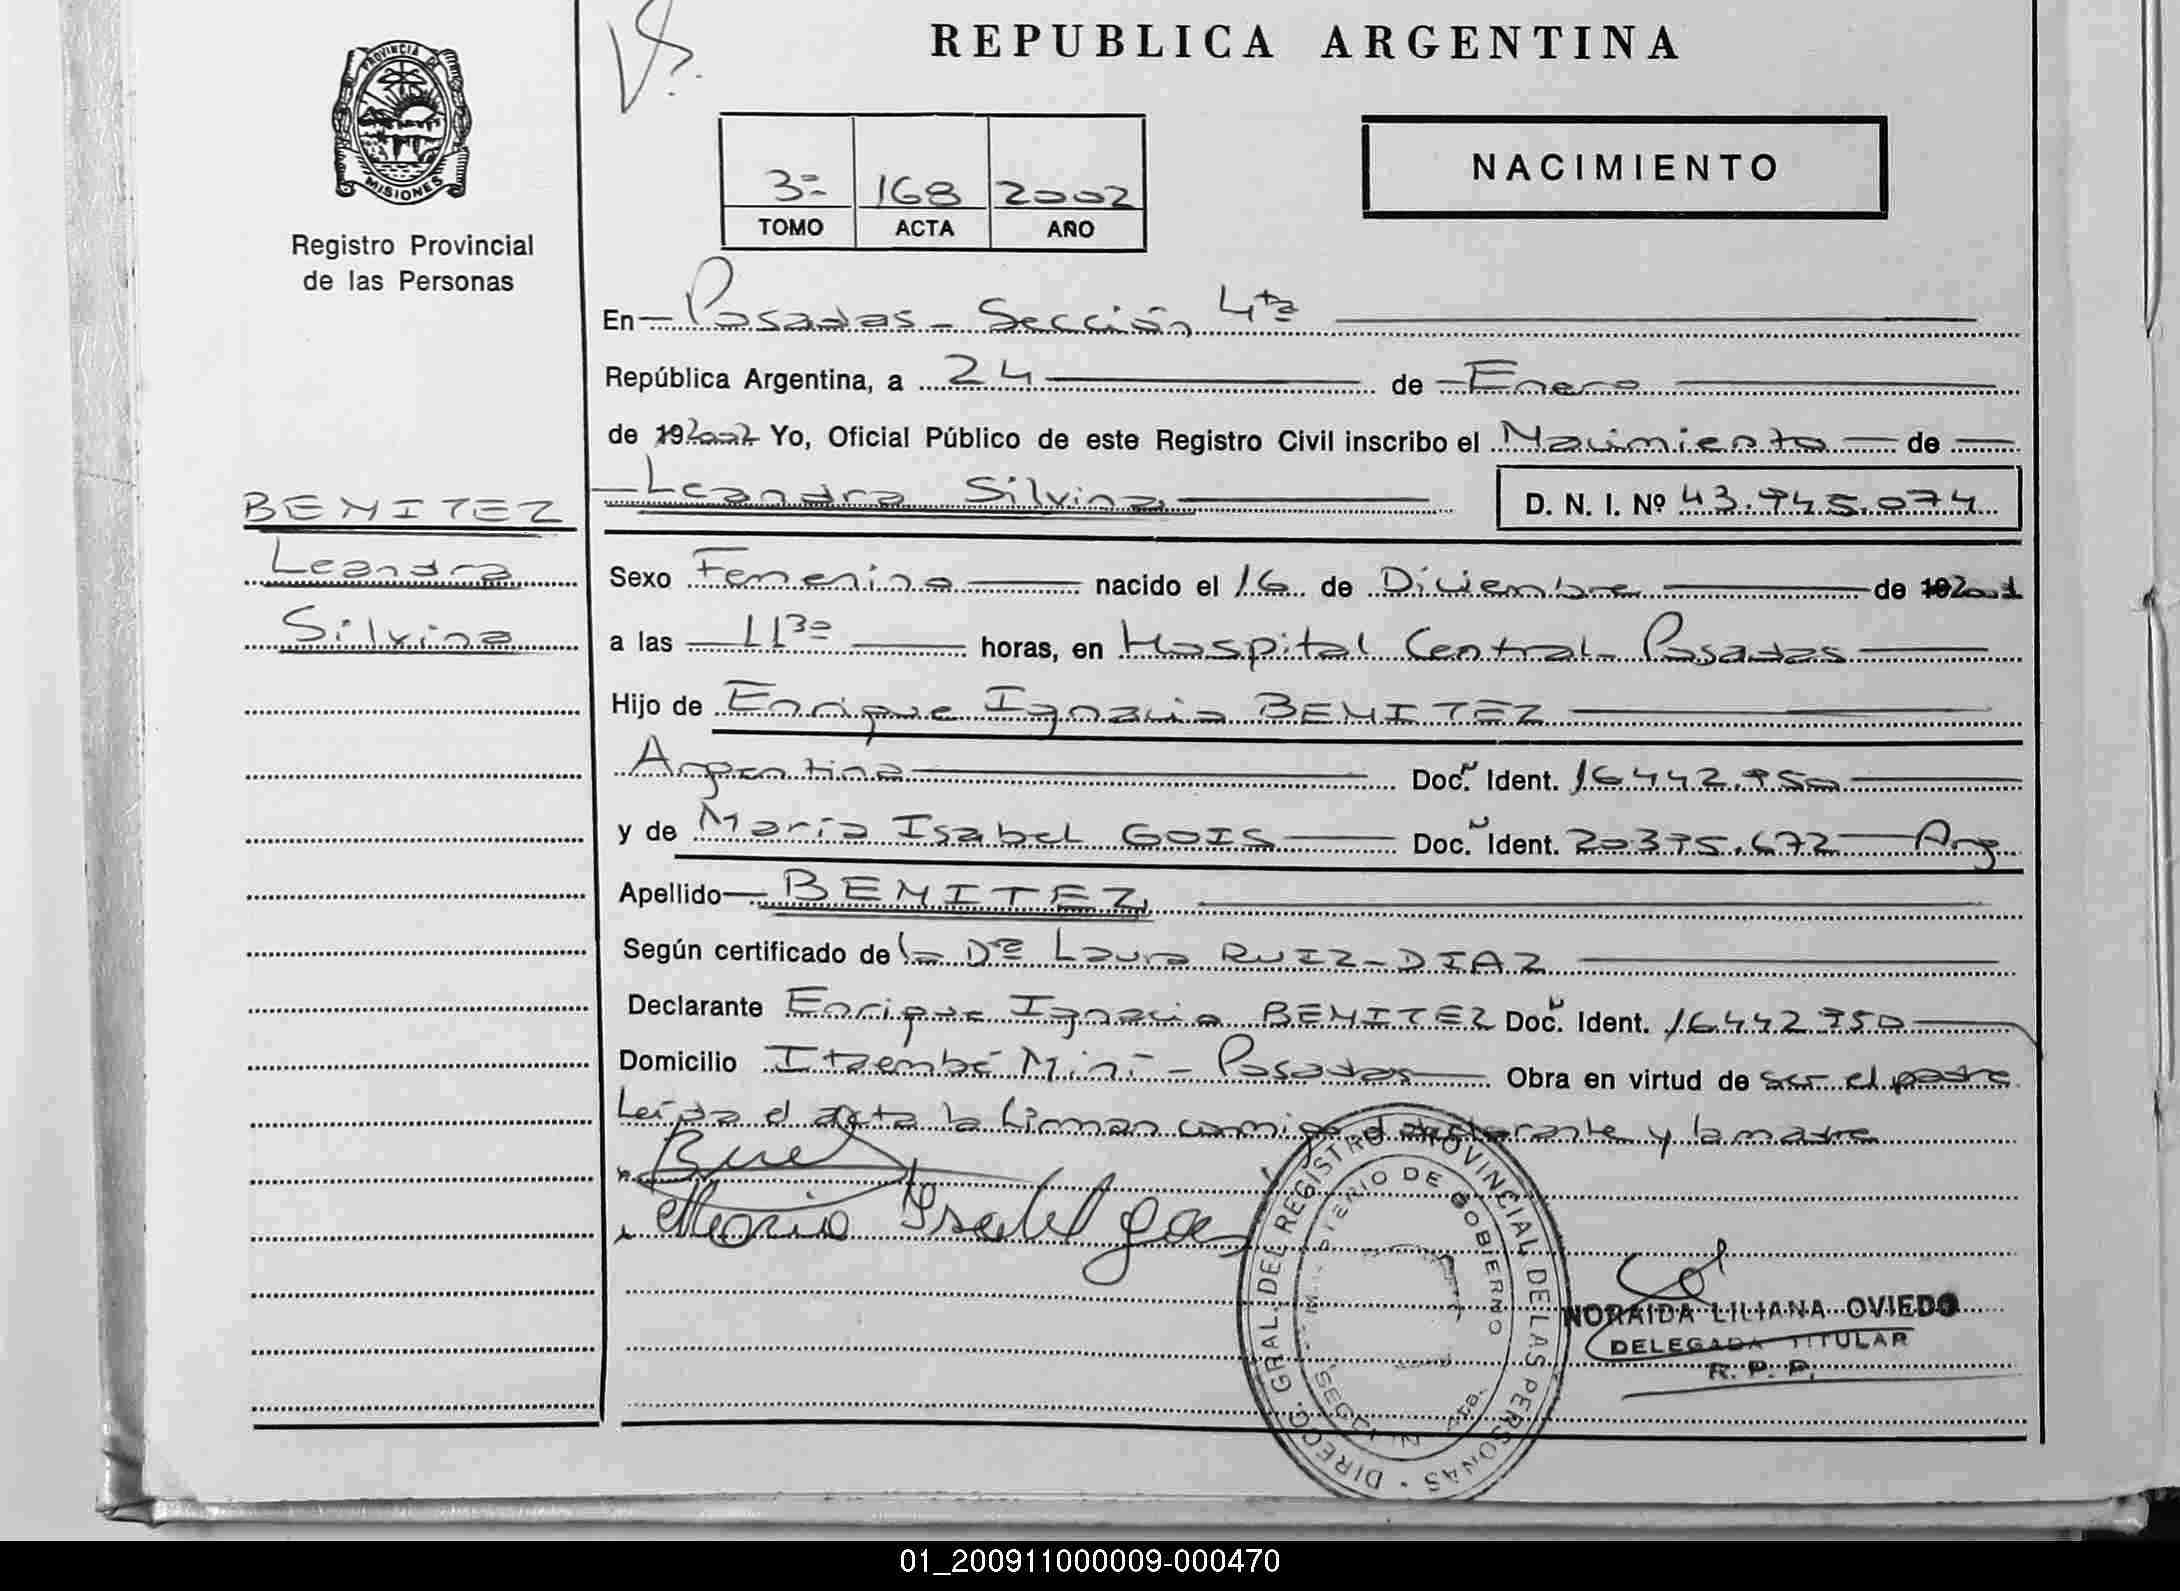 REPUBLICA ARGENTINA
PROVINCIA DE
MISIONES
Registro Provincial
de las Personas
NACIMIENTO
3º 168 2002
TOMO ACTA AÑO
En Posadas - Sección 4ta
República Argentina, a 24 de Enero
de 19 2002 Yo, Oficial Público de este Registro Civil inscribo el Nacimiento de
Leandra Silvina D. N. I. Nº 43.945.074
BENITEZ
Leandra
Silvina
Sexo Femenino nacido el 16 de Diciembre de 19 2001
a las 11 30 horas, en Hospital Central - Posadas
Hijo de Enrique Ignacio BENITEZ
Argentina Doc. Ident. 16.442.950
y de María Isabel GOIS Doc. Ident. Arg
Apellido BENITEZ
Según certificado de la Dra Laura RUIZ-DIAZ
Declarante Enrique Ignacio BENITEZ Doc. Ident. 16.442.950
Domicilio Itaembé Miní - Posadas Obra en virtud de ser el padre
Leída el acta la firman conmigo el declarante y la madre
Maria Isabel
DIRECC. GRAL. DEL REGISTRO PROVINCIAL DE LAS PERSONAS
DE GOBIERNO
NORAIDA LILIANA OVIEDO
DELEGADA TITULAR
R. P. P.
01_200911000009-000470